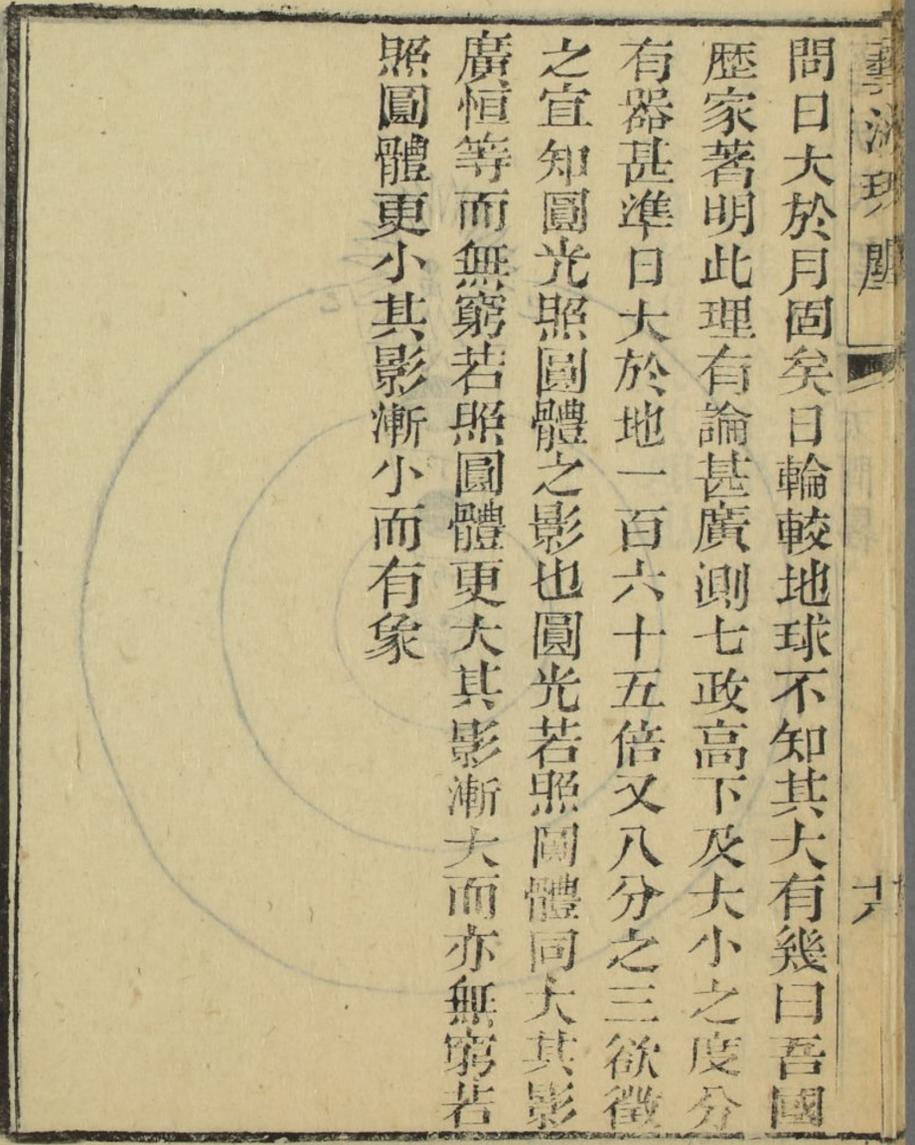 問日大於月固矣日輪較地球不知其大有幾曰吾國
歷家著明此理有論甚廣測七政高下及大小之度分
有器甚準日大於地一百六十五倍又八分之三欲徵
之宜知圓光照圓體之影也圓光若照圓體同大其影
廣恒等而無窮若照圓體更大其影漸大而亦無窮若
照圓體更小其影漸小而有象